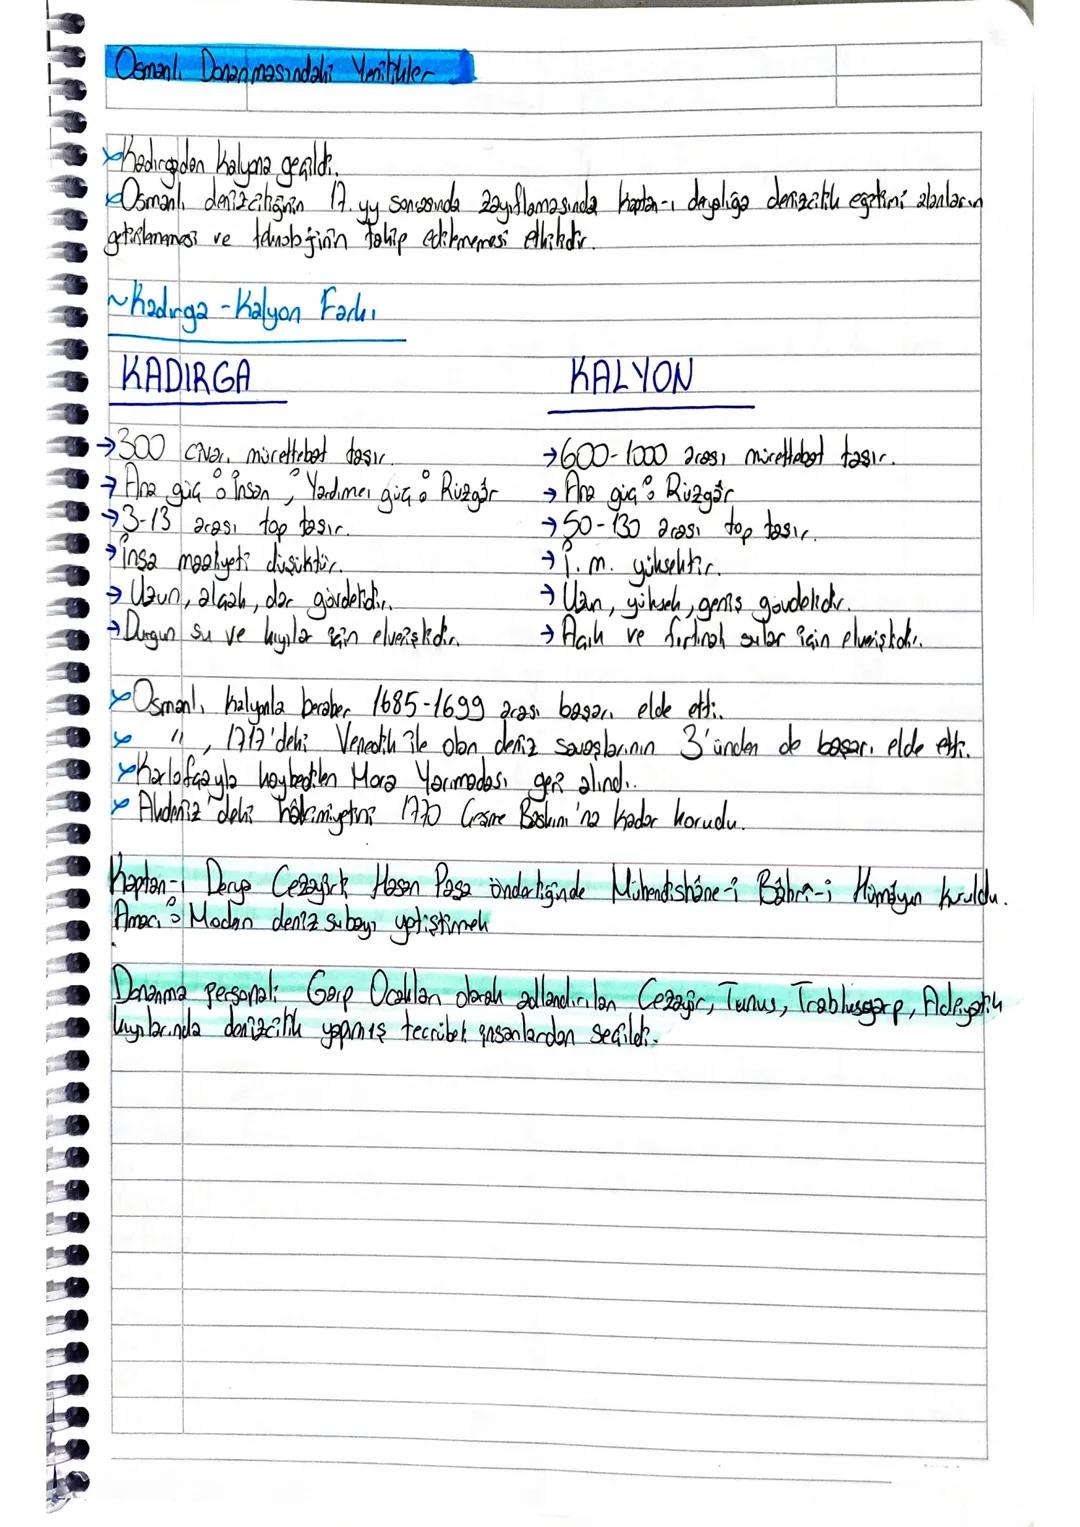 Osmanlı Donanmasındaki Yenilikler
Kadırgadan kalyona geçildi.
Osmanlı denizciliğinin 17. yy sonrasında zayıflamasında kaptan-ı deryalığa denizcilik eğitimi alanların
getirilememesi ve teknolojinin takip edilmemesi etkilidir.
~Kadırga - Kalyon Farkı
KADIRGA KALYON
→300 civarı mürettebat taşır. →600-1000 arası mürettebat taşır.
→ Ana güç: İnsan, Yardımcı güç: Rüzgâr → Ana güç: Rüzgâr
→3-13 arası top taşır. →50-130 arası top taşır.
→İnşa maaliyeti düşüktür. →İ. m. yüksektir.
→ Uzun, alçak, dar gövdelidir. → Uzun, yüksek, geniş gövdelidir.
→Durgun su ve kıyılar için elverişlidir. → Açık ve fırtınalı sular için elverişlidir.
Osmanlı, kalyonla beraber 1685-1699 arası başarı elde etti.
" , 1717'deki Venedik ile olan deniz savaşlarının 3'ünden de başarı elde etti.
Karlofça'yla kaybedilen Mora Yarımadası geri alındı.
Akdeniz'deki hâkimiyetini 1770 Çeşme Baskını'na kadar korudu.
Kaptan-ı Derya Cezayirli Hasan Paşa önderliğinde Mühendishâne-i Bâhrî-i Hümâyun kuruldu.
Amacı: Modern deniz subayı yetiştirmek
Donanma personeli Garp Ocakları olarak adlandırılan Cezayir, Tunus, Trablusgarp, Adriyatik
kıyılarında denizcilik yapmış tecrübeli insanlardan seçildi.